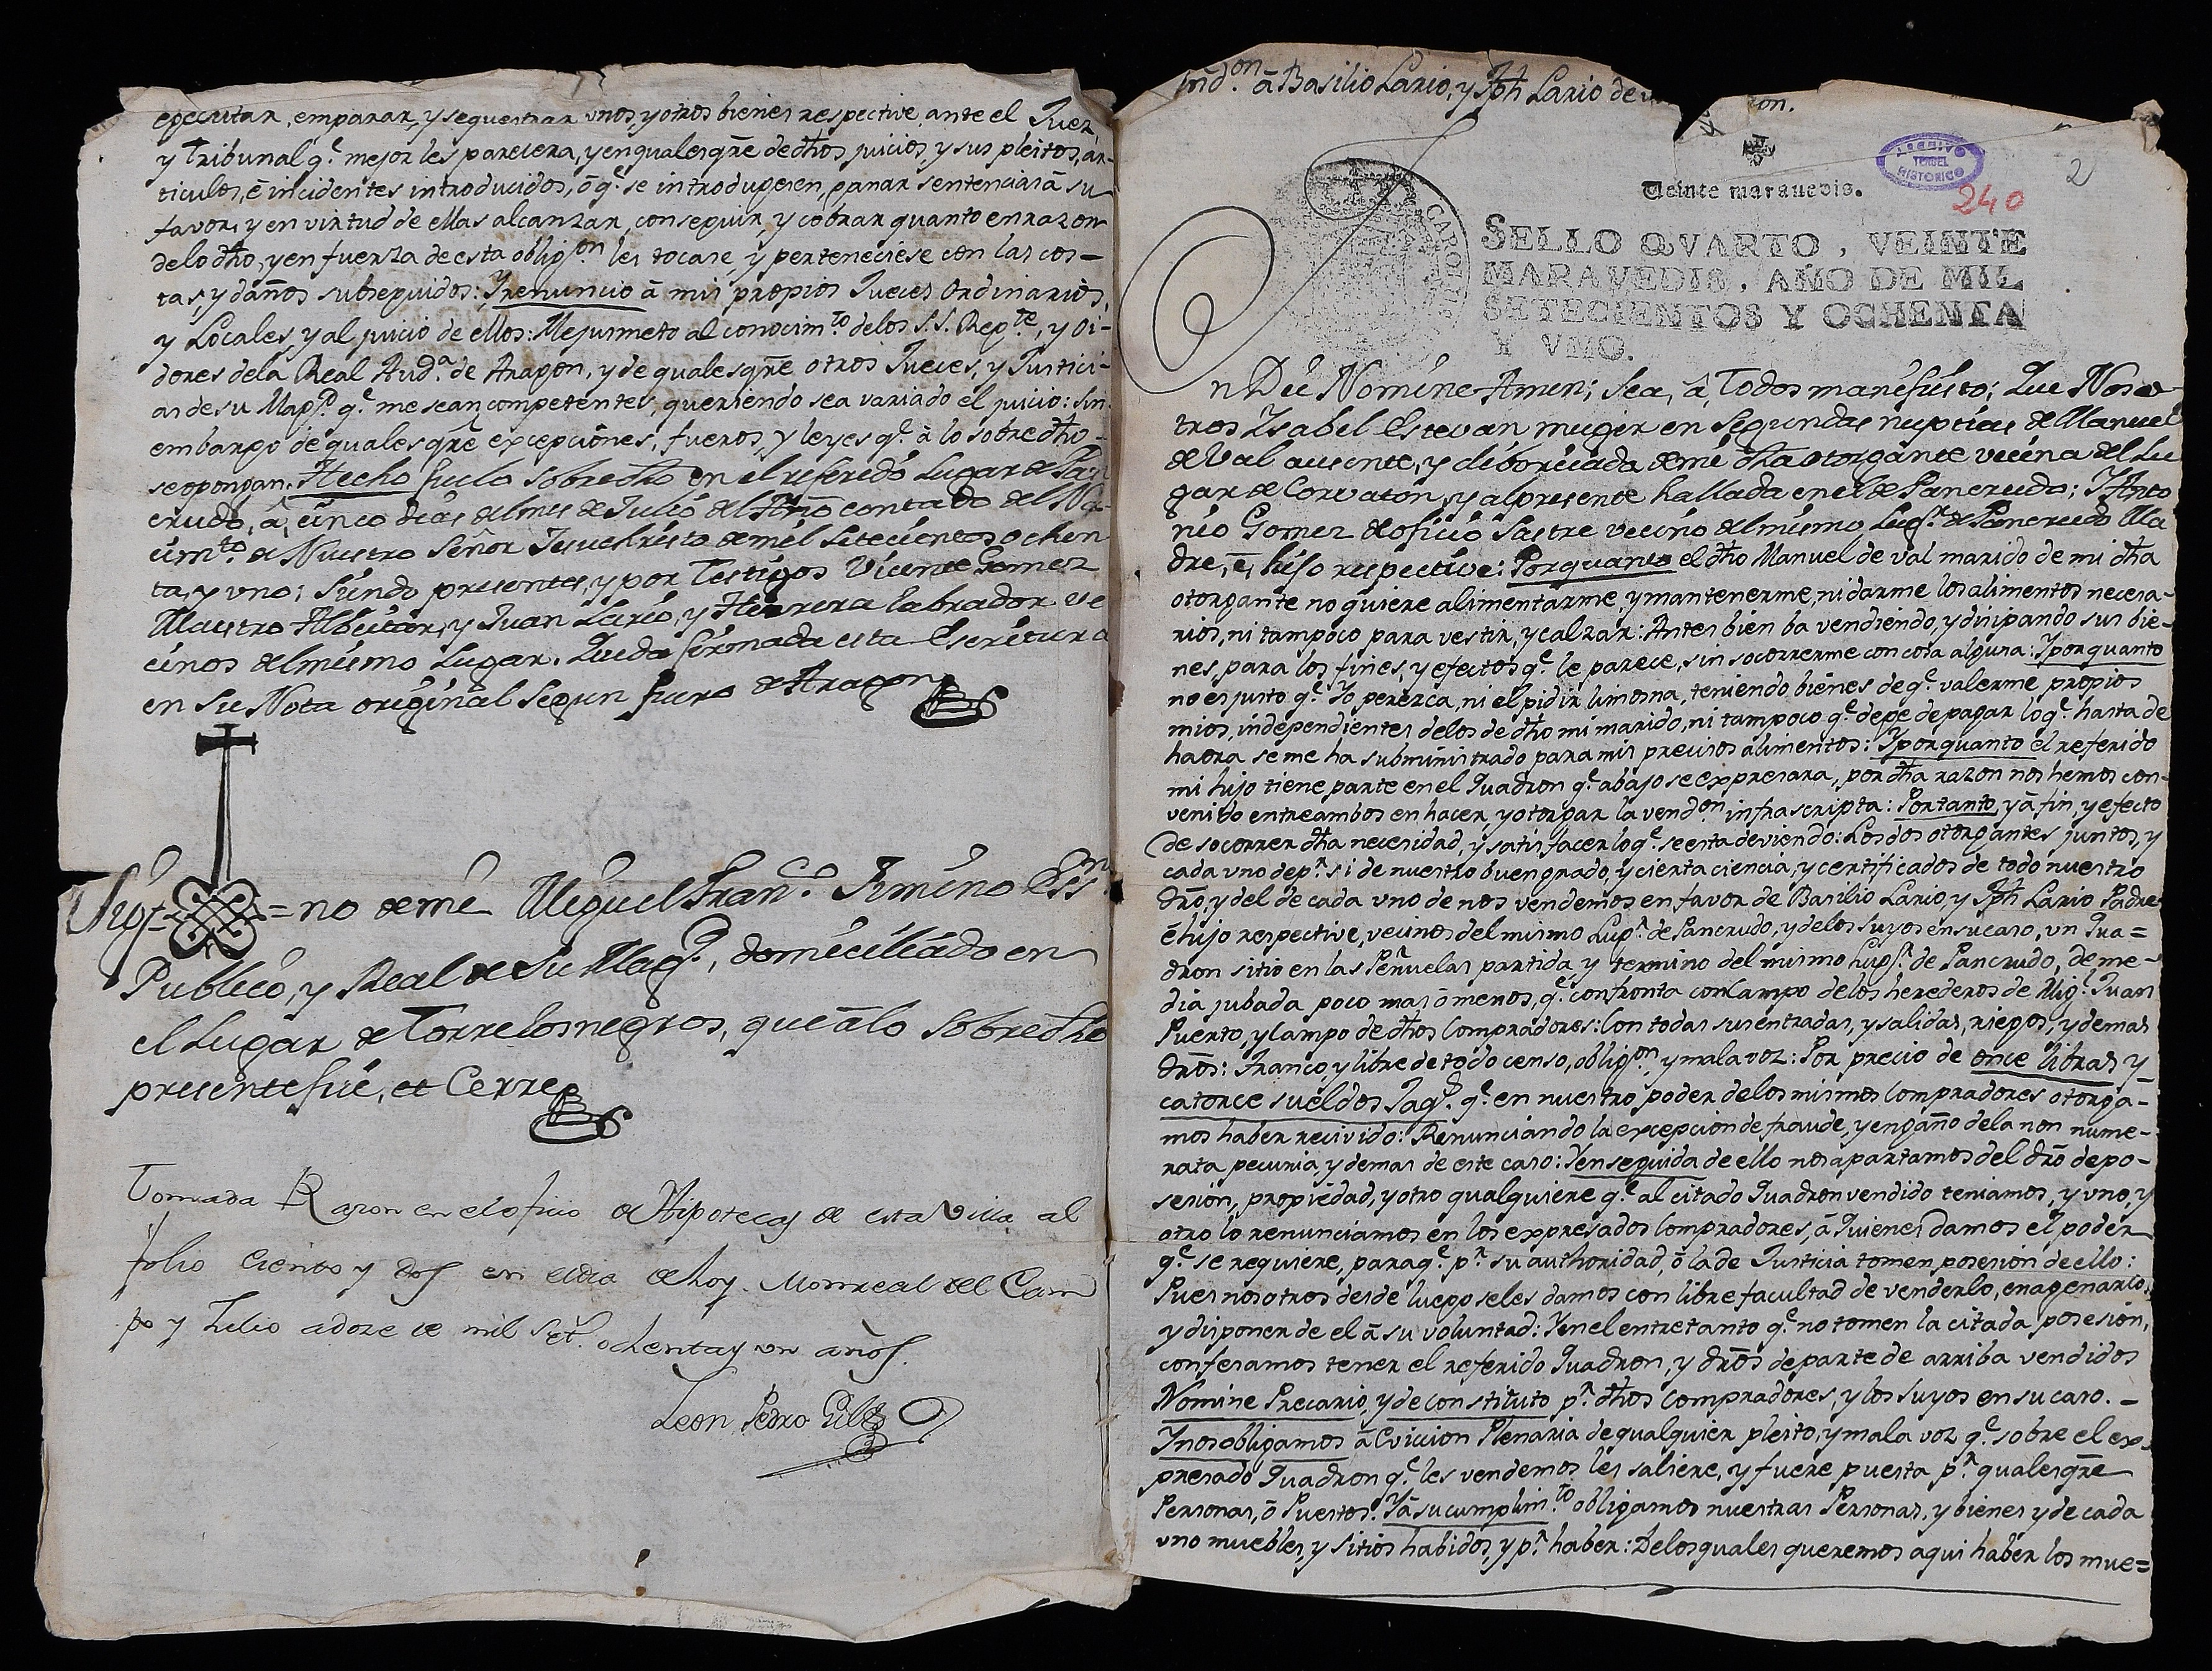 executar, emparar, y sequestrar unos, y otros bienes respective, ante el Juez,
y Tribunal q.e mejor les pareciera, y en qualesqre de dhos juicios, y sus pleitos, ar-
ticulos, è incidentes introducidos, ò q.e se introdugeren, ganar sentencias à su
favor, y en virtud de ellas alcanzar, conseguir, y cobrar quanto en razon
de lo dho, y en fuerza de esta oblig.on les tocare, y perteneciese con las cos-
tas, y daños subseguidos: Y renuncio à mis propios Jueces Ordinarios,
y Locales, y al juicio de ellos: Me jusmeto al conocim.to de los S.S. Reg.te, y Oi-
dores de la Real Aud.a de Aragon, y de qualesqre otros Jueces, y Justici-
as de su Mag.d q.e me sean competentes, queriendo sea variado el juicio: Sin
embargo de qualesqre excepciones, fueros, y leyes q.e à lo sobredho
se opongan. Hecho fue lo sobredho en el referido Lugar de Pan
crudo, â, cinco dias del mes de Julio del Año contado del Na-
cim.to de Nuestro Señor Jesuchristo de mil setecientos ochen
ta, y uno; siendo presentes, y por Testigos Vicente Gomez
Maestro Albeitar, y Juan Lario, y Herrera labrador ve
cinos del mismo Lugar. Queda firmada esta Escritura
en su Nota original segun fuero de Aragon
Sig=no de mi Miguel Fran.co Ximeno Ess.no
Publico, y Real de Su Mag.d, domiciliado en
el Lugar de Torrelosnegros, que à lo sobredho
presente fui, et Cerre
Tomada Razon en el oficio de Hipotecas de esta Villa al
folio Ciento y dos en el dia de hoy. Monreal del Cam
po y Julio a doze de mil Set.s ochenta y un años.
Leon Pedro Gil
Vnd.on à Basilio Lario, y Jph Lario de
2
Veinte maravedis.
ARCHIVO HISTORICO
TERUEL
240
SELLO QVARTO, VEINTE
MARAVEDIS, AÑO DE MIL
SETECIENTOS Y OCHENTA
Y VNO.
n Dei Nomine Amen; Sea, â, Todos manifiesto; Que Noso
tros Isabel Estevan muger en segundas nuptias de Manuel
de Val ausente, y diborciada de mi dha otorgante vecina del Lu
gar de Corvaton, y al presente hallada en el de Pancrudo; Y Anto
nio Gomez de oficio Sastre vecino del mismo Lug.r de Pancrudo Ma
dre, è, hijo respective: Por quanto el dho Manuel de val marido de mi dha
otorgante no quiere alimentarme, y mantenerme, ni darme los alimentos necesa-
rios, ni tampoco para vestir, y calzar: Antes bien ba vendiendo, y disipando sus bie-
nes, para los fines, y efectos q.e le parece, sin socorrerme con cosa alguna: Y por quanto
no es justo q.e Yo perezca, ni el pidir limosna, teniendo bienes de q.e valerme propios
mios, independientes de los de dho mi marido, ni tampoco q.e dege de pagar lo q.e hasta de
haora se me ha subministrado para mis precisos alimentos: Y por quanto el referido
mi hijo tiene parte en el Quadron q.e abajo se expresara, por dha razon nos hemos con-
venido entreambos en hacer, y otorgar la vend.on infrascripta: Por tanto, y à fin, y efecto
de socorrer dha necesidad, y satisfacer lo q.e se esta deviendo: Los dos otorgantes juntos, y
cada uno de p.r si de nuestro buen grado, y cierta ciencia, y certificados de todo nuestro
dro, y del de cada uno de nos vendemos en favor de Basilio Lario, y Jph Lario Padre
è hijo respective, vecinos del mismo Lug.r de Pancrudo, y de los suyos en su caso, un Qua=
dron sitio en las Peñuelas partida y termino del mismo Lug.r de Pancrudo, de me-
dia jubada poco mas ò menos, q.e confronta con Campo de los herederos de Mig.l Juan
Puerto, y Campo de dhos Compradores: Con todas sus entradas, y salidas, riegos, y demas
dros: Franco, y libre de todo censo, oblig.on, y mala voz: Por precio de once libras y
catorce sueldos Jaq.s q.e en nuestro poder de los mismos Compradores otorga-
mos haber recivido: Renunciando la excepcion de fraude, y engaño de la non nume-
rata pecunia, y demas de este caso: Y en seguida de ello nos apartamos del dro de po-
sesion, propiedad, y otro qualquiere q.e al citado Quadron vendido teniamos, y uno, y
otro lo renunciamos en los expresados Compradores, à Quienes damos el poder
q.e se requiere, para q.e p.r su authoridad, ò la de Justicia tomen posesion de ello:
Pues nosotros desde luego se les damos con libre facultad de venderlo, enagenarlo,
y disponer de el à su voluntad: Y en el entretanto q.e no tomen la citada posesion,
confesamos tener el referido Quadron, y dros de parte de arriba vendidos
Nomine Precario, y de constituto p.r dhos compradores, y los suyos en su caso. -
Y nos obligamos à Eviccion Plenaria de qualquier pleito, y mala voz q.e sobre el ex-
presado Quadron q.e les vendemos les saliere, y fuere puesta p.r qualesqre
Personas, ò Puestos. Y à su cumplim.to obligamos nuestras Personas, y bienes y de cada
uno muebles, y sitios habidos, y p.r haber: De los quales queremos aqui haber los mue=